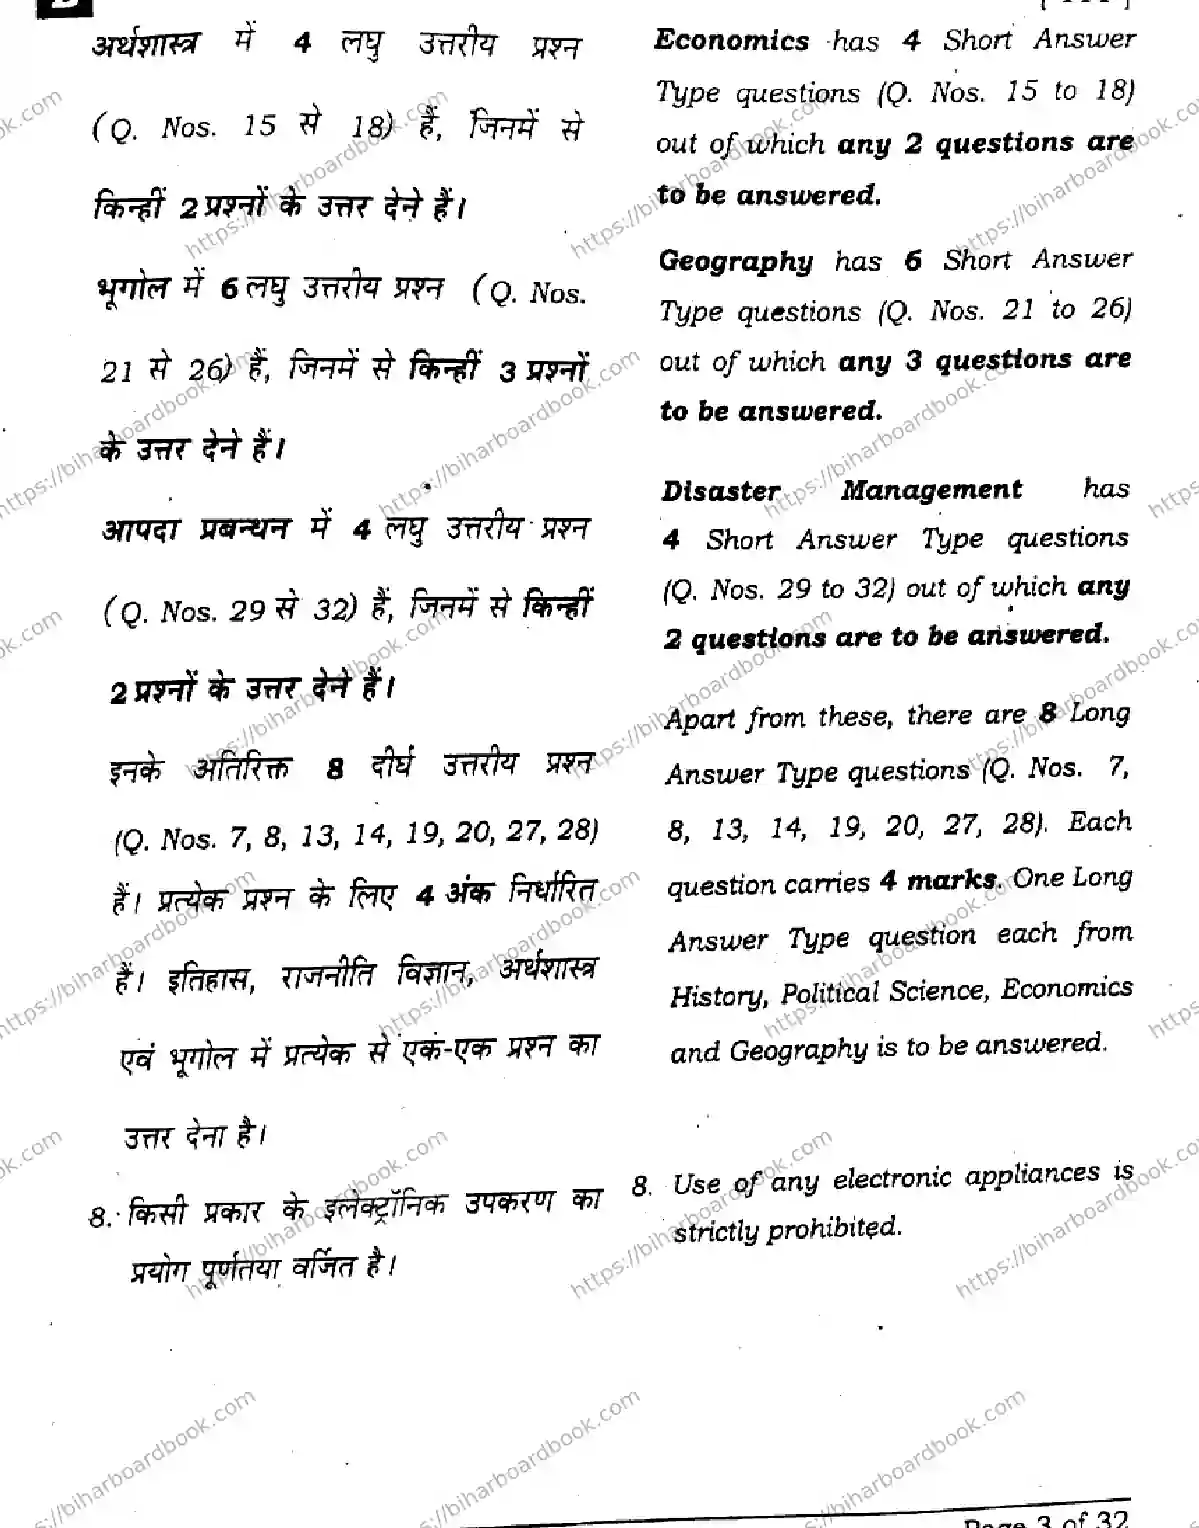 अर्थशास्त्र में 4 लघु उत्तरीय प्रश्न
(Q. Nos. 15 से 18) हैं, जिनमें से
किन्हीं 2 प्रश्नों के उत्तर देने हैं।
भूगोल में 6 लघु उत्तरीय प्रश्न (Q. Nos.
21 से 26) हैं, जिनमें से किन्हीं 3 प्रश्नों
के उत्तर देने हैं।
आपदा प्रबन्धन में 4 लघु उत्तरीय प्रश्न
(Q. Nos. 29 से 32) हैं, जिनमें से किन्हीं
2 प्रश्नों के उत्तर देने हैं।
इनके अतिरिक्त 8 दीर्घ उत्तरीय प्रश्न
(Q. Nos. 7, 8, 13, 14, 19, 20, 27, 28)
हैं। प्रत्येक प्रश्न के लिए 4 अंक निर्धारित
हैं। इतिहास, राजनीति विज्ञान, अर्थशास्त्र
एवं भूगोल में प्रत्येक से एक-एक प्रश्न का
उत्तर देना है।
8. किसी प्रकार के इलेक्ट्रॉनिक उपकरण का
प्रयोग पूर्णतया वर्जित है।
Economics has 4 Short Answer
Type questions (Q. Nos. 15 to 18)
out of which any 2 questions are
to be answered.
Geography has 6 Short Answer
Type questions (Q. Nos. 21 to 26)
out of which any 3 questions are
to be answered.
Disaster Management has
4 Short Answer Type questions
(Q. Nos. 29 to 32) out of which any
2 questions are to be answered.
Apart from these, there are 8 Long
Answer Type questions (Q. Nos. 7,
8, 13, 14, 19, 20, 27, 28). Each
question carries 4 marks. One Long
Answer Type question each from
History, Political Science, Economics
and Geography is to be answered.
8. Use of any electronic appliances is
strictly prohibited.
Page 3 of 32
https://biharboardbook.com